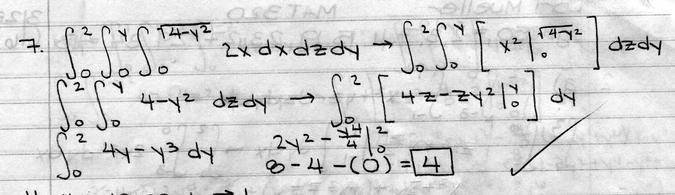 7. ∫₀² ∫₀^y ∫₀^√(4-y²) 2x dx dz dy → ∫₀² ∫₀^y [ x² |₀^√(4-y²) ] dz dy
∫₀² ∫₀^y 4-y² dz dy → ∫₀² [ 4z - zy² |₀^y ] dy
∫₀² 4y - y³ dy 2y² - y⁴/4 |₀²
8 - 4 - (0) = 4